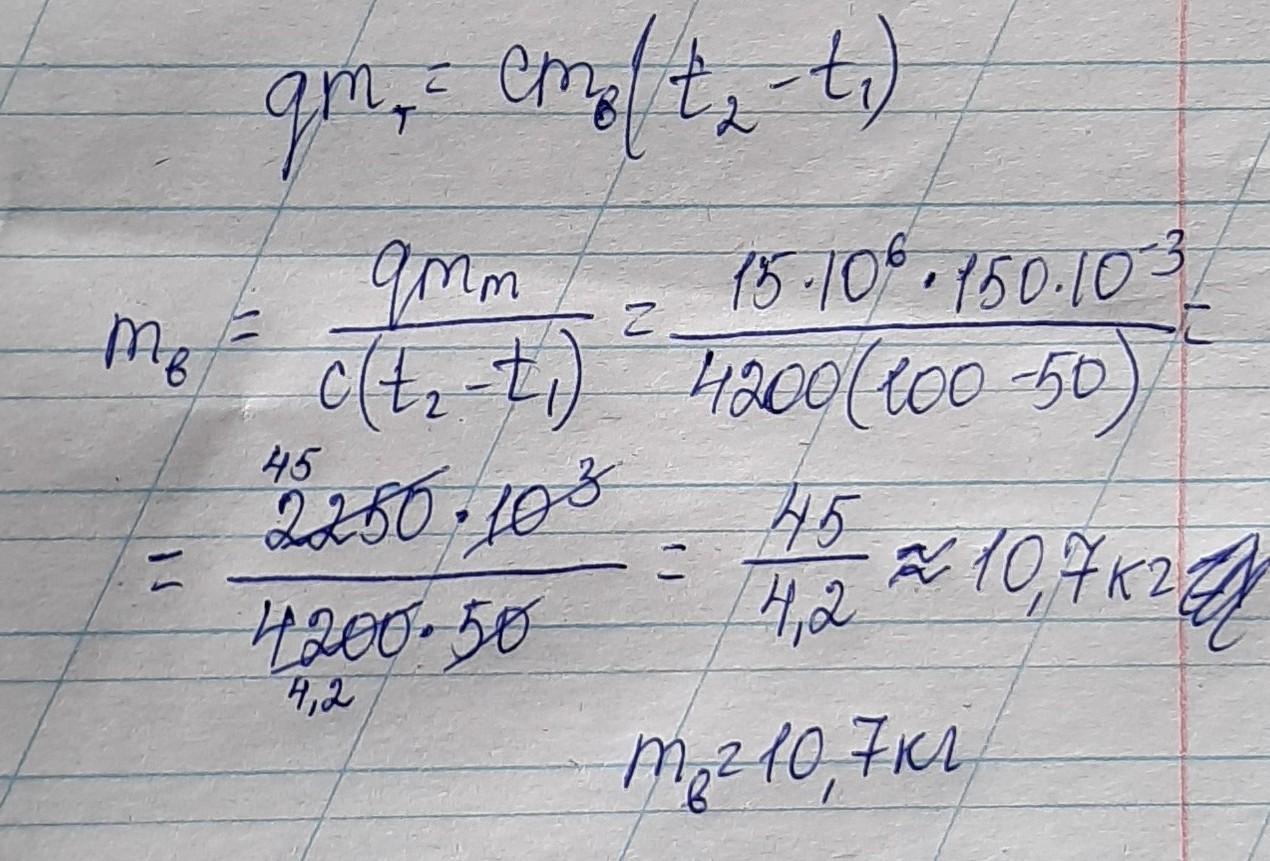 qmₜ = cmв(t₂ - t₁)
mв = qmт / c(t₂ - t₁) = 15·10⁶·150·10⁻³ / 4200(100 - 50) =
45
= 2250·10³ / 4200·50 = 45 / 4,2 ≈ 10,7 кг
4,2
mв = 10,7 кг